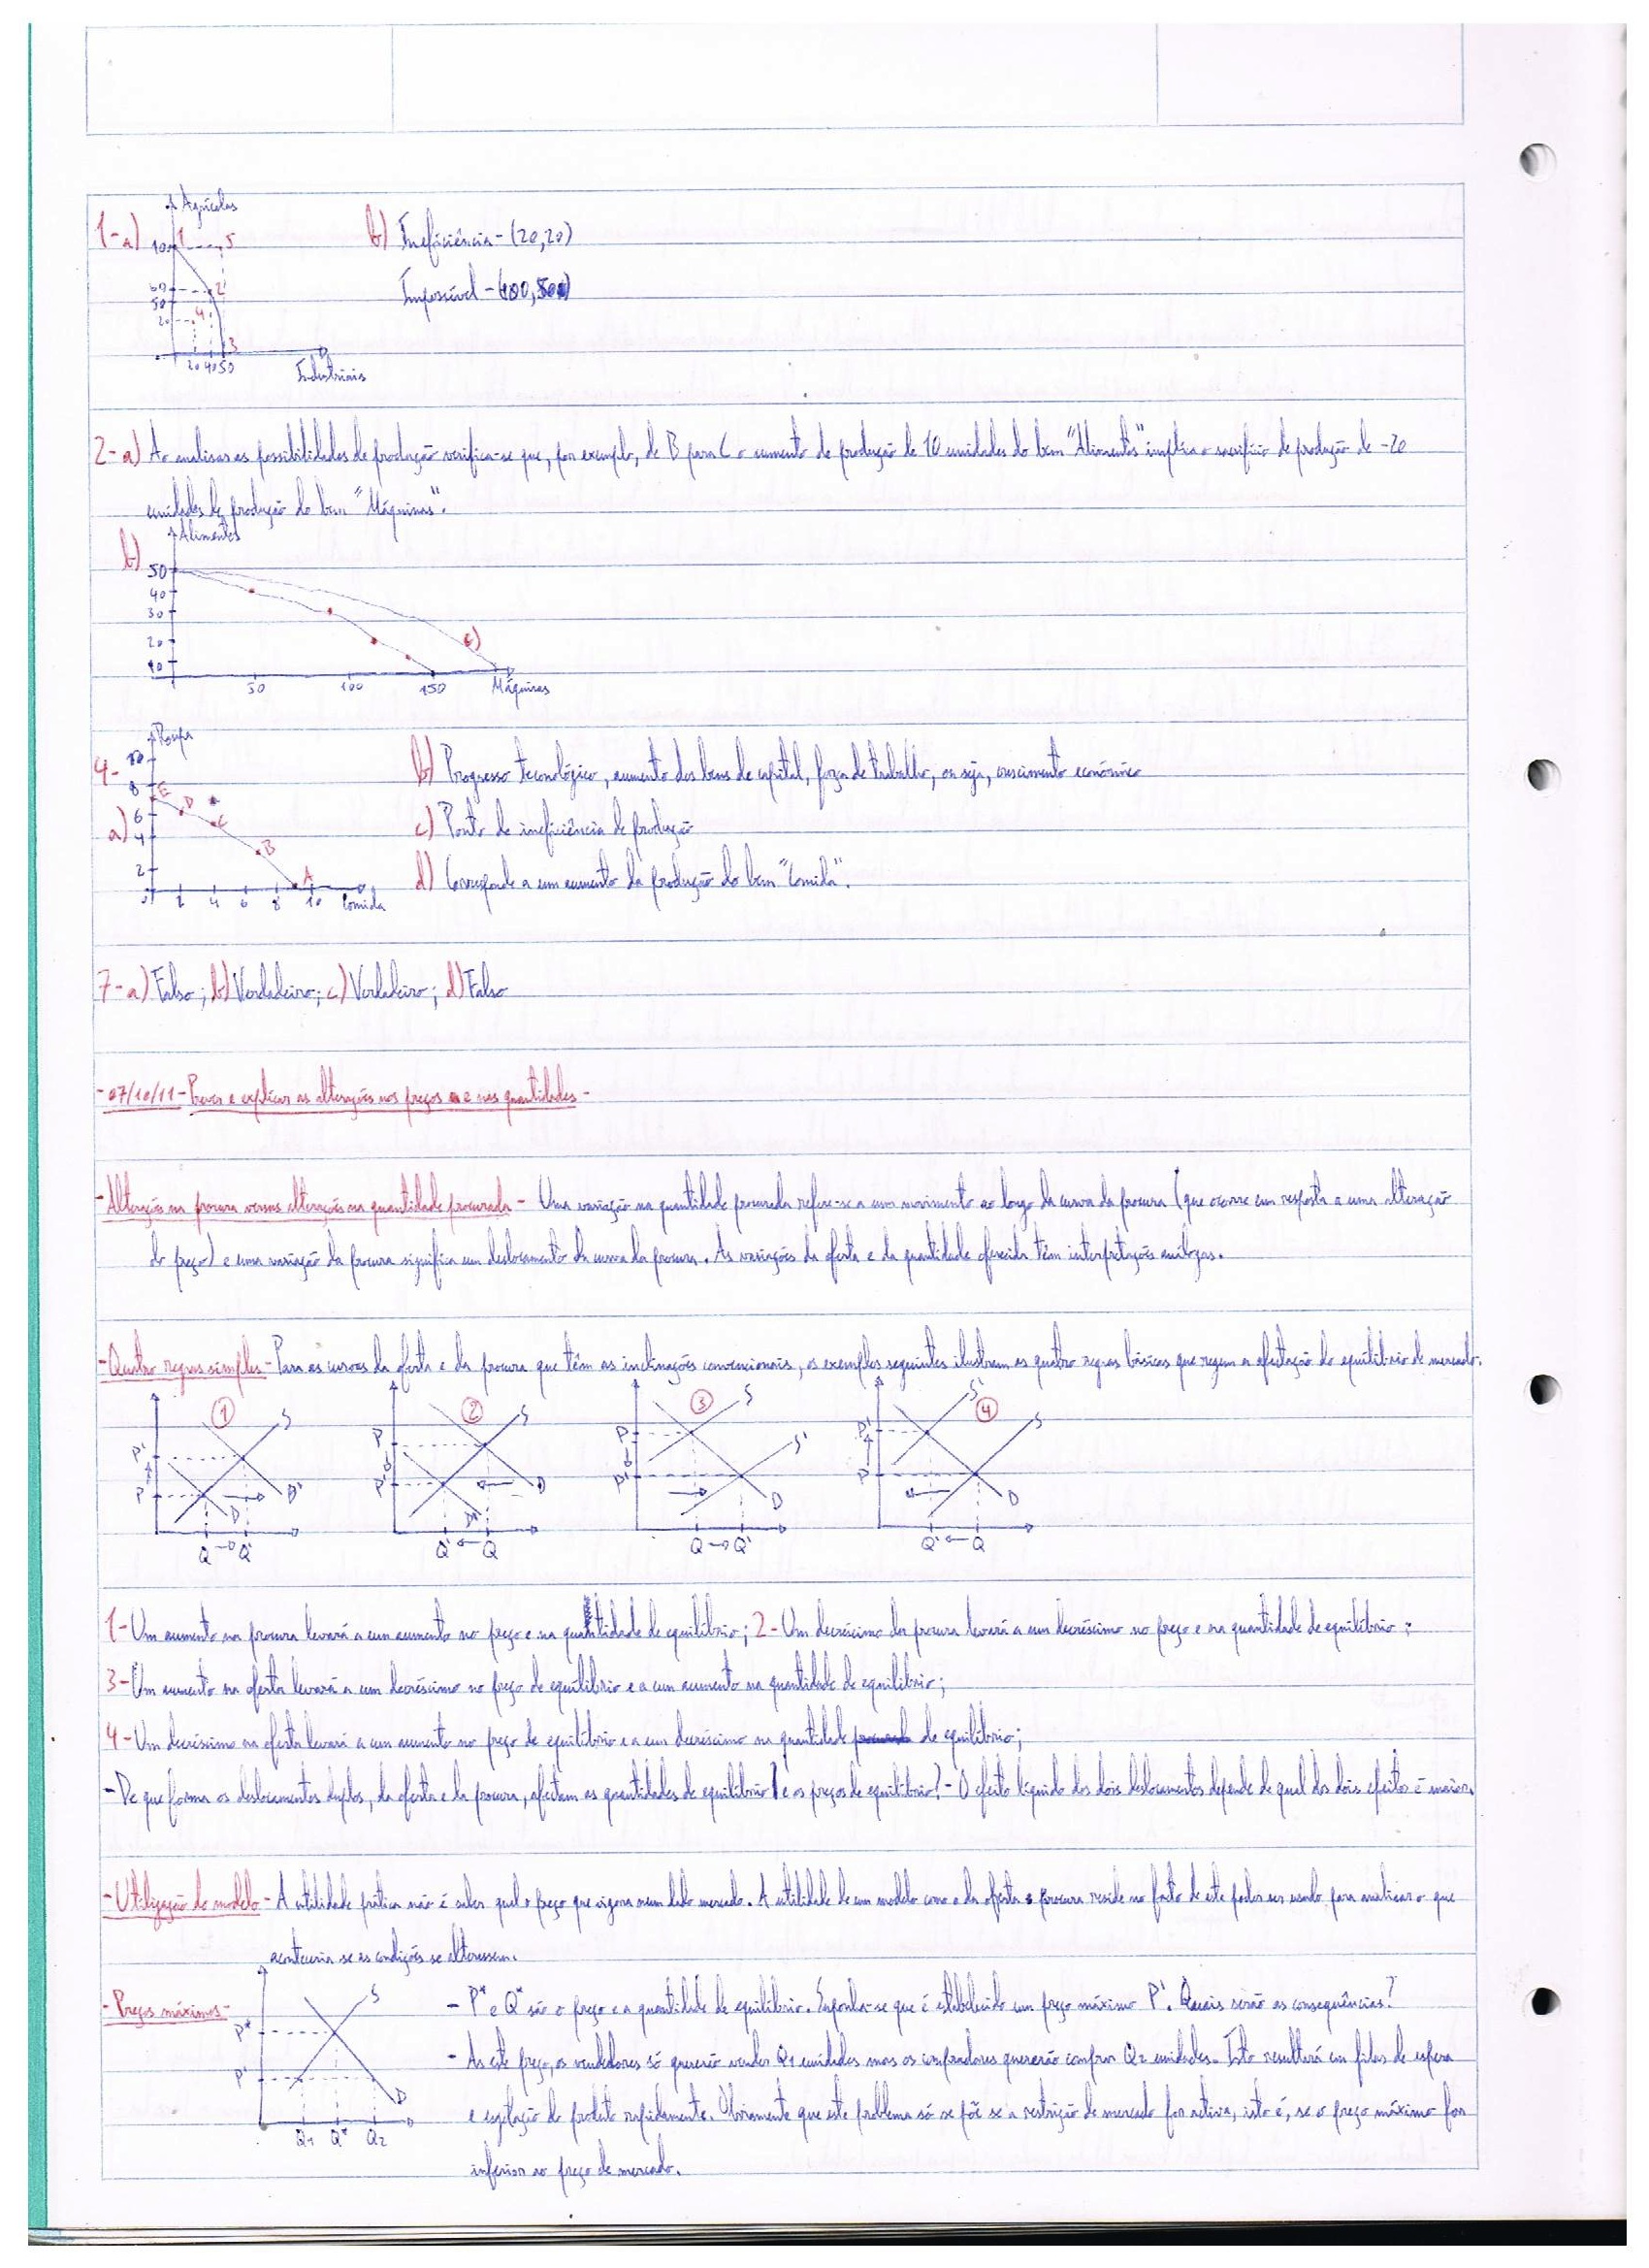 Agrícolas
1-a) 100 1 5
b) Ineficiência - (20,20)
Impossível - (100,500)
60 2
50
20 4
3
20 40 50
Industriais
2-a) Ao analisar as possibilidades de produção verifica-se que, por exemplo, de B para C o aumento de produção de 10 unidades do bem "Alimentos" implica o sacrifício de produção de -20
unidades de produção do bem "Máquinas".
b) Alimentos
50
40
30
20 c)
10
50 100 150 Máquinas
Roupa
4- 10
b) Progresso tecnológico, aumento dos bens de capital, força de trabalho, ou seja, crescimento económico
8 E
6 D C
a) 4 B
c) Ponto de ineficiência de produção
2 A
d) Corresponde a um aumento da produção do bem "Comida".
0 2 4 6 8 10 Comida
7-a) Falso; b) Verdadeiro; c) Verdadeiro; d) Falso
- 07/10/11 - Prever e explicar as alterações nos preços e nas quantidades -
- Alteração na procura versus alterações na quantidade procurada - Uma variação na quantidade procurada refere-se a um movimento ao longo da curva da procura (que ocorre em resposta a uma alteração
do preço) e uma variação da procura significa um deslocamento da curva da procura. As variações da oferta e da quantidade oferecida têm interpretações análogas.
- Quatro regras simples - Para as curvas da oferta e da procura que têm as inclinações convencionais, os exemplos seguintes ilustram as quatro regras básicas que regem a afectação do equilíbrio de mercado.
1 S P' P D D' Q → Q'
2 S P P' D D' Q' ← Q
3 S S' P P' D Q → Q'
4 S' S P' P D Q' ← Q
1 - Um aumento na procura levará a um aumento no preço e na quantidade de equilíbrio; 2 - Um decréscimo da procura levará a um decréscimo no preço e na quantidade de equilíbrio;
3 - Um aumento na oferta levará a um decréscimo no preço de equilíbrio e a um aumento na quantidade de equilíbrio;
4 - Um decréscimo na oferta levará a um aumento no preço de equilíbrio e a um decréscimo na quantidade procurada de equilíbrio;
- De que forma os deslocamentos duplos, da oferta e da procura, afectam as quantidades de equilíbrio e os preços de equilíbrio? - O efeito líquido dos dois deslocamentos depende de qual dos dois efeitos é maior.
- Utilização do modelo - A utilidade prática não é saber qual o preço que vigora num dado mercado. A utilidade de um modelo como o da oferta e procura reside no facto de este poder ser usado para analisar o que
aconteceria se as condições se alterassem.
- Preços máximos -
S
P*
P'
D
Q1 Q* Q2
- P* e Q* são o preço e a quantidade de equilíbrio. Suponha-se que é estabelecido um preço máximo P'. Quais serão as consequências?
- As este preço, os vendedores só quererão vender Q1 unidades mas os compradores quererão comprar Q2 unidades. Isto resultará em filas de espera
e esgotação do produto rapidamente. Obviamente que este problema só se põe se a restrição de mercado for activa, isto é, se o preço máximo for
inferior ao preço de mercado.